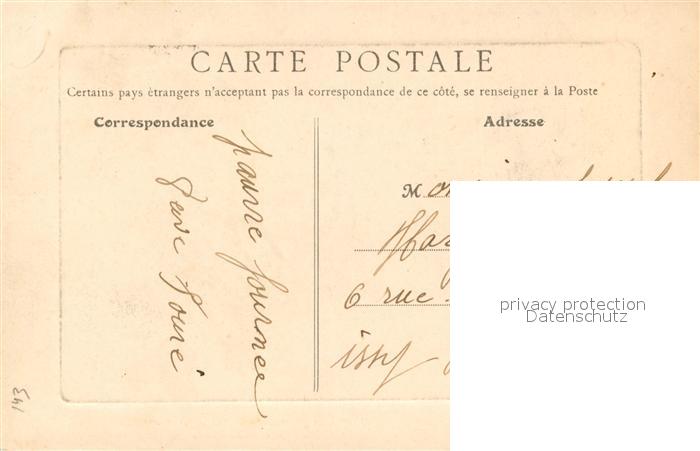 CARTE POSTALE
Certains pays étrangers n'acceptent pas la correspondance de ce côté, se renseigner à la Poste
Correspondance
Adresse
pauvre journee
M
6 rue
issy
privacy protection
Datenschutz
143